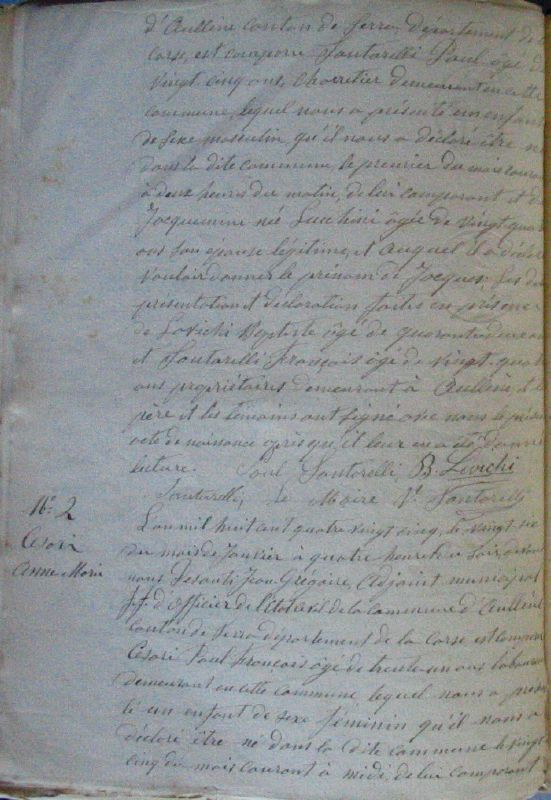 d'Aullène, canton de Serra, département de
Corse, est comparu Santarelli Paul âgé de
vingt cinq ans, charretier demeurant en cette
commune, lequel nous a présenté un enfant
de sexe masculin, qu'il nous a déclaré être
dans la dite commune, le premier du mois couran
à deux heures du matin, de lui comparant et d
Jacquemine née Lucchini âgée de vingt quat
ans son epouse légitime, et auquel il a déclaré
vouloir donner le prénom de Jacques. Les dit
présentation et déclaration faites en présence
de Lovichi Baptiste âgé de quarante deux an
et Santarelli François âgé de vingt quatre
ans propriétaires demeurant à Aullène, et l
père et les témoins ont signé avec nous le présen
acte de naissance après qu'il leur en a été donné
lecture. Paul Santarelli B. Lovichi
Santarelli, Le Maire Santarelli
N° 2
Cesari
Anne Marie
L'an mil huit cent quatre vingt cinq, le vingt six
du mois de Janvier à quatre heures du soir, devant
nous Desanti Jean Grégoire, Adjoint municipal
f.f. d'officier de l'état civil de la commune d'Aullène
canton de Serra département de la Corse est comparu
Cesari Paul François âgé de trente un ans laboureur
demeurant en cette commune lequel nous a présen
té un enfant de sexe féminin qu'il nous a
déclaré être né dans la dite commune le vingt
cinq du mois courant à midi, de lui comparant